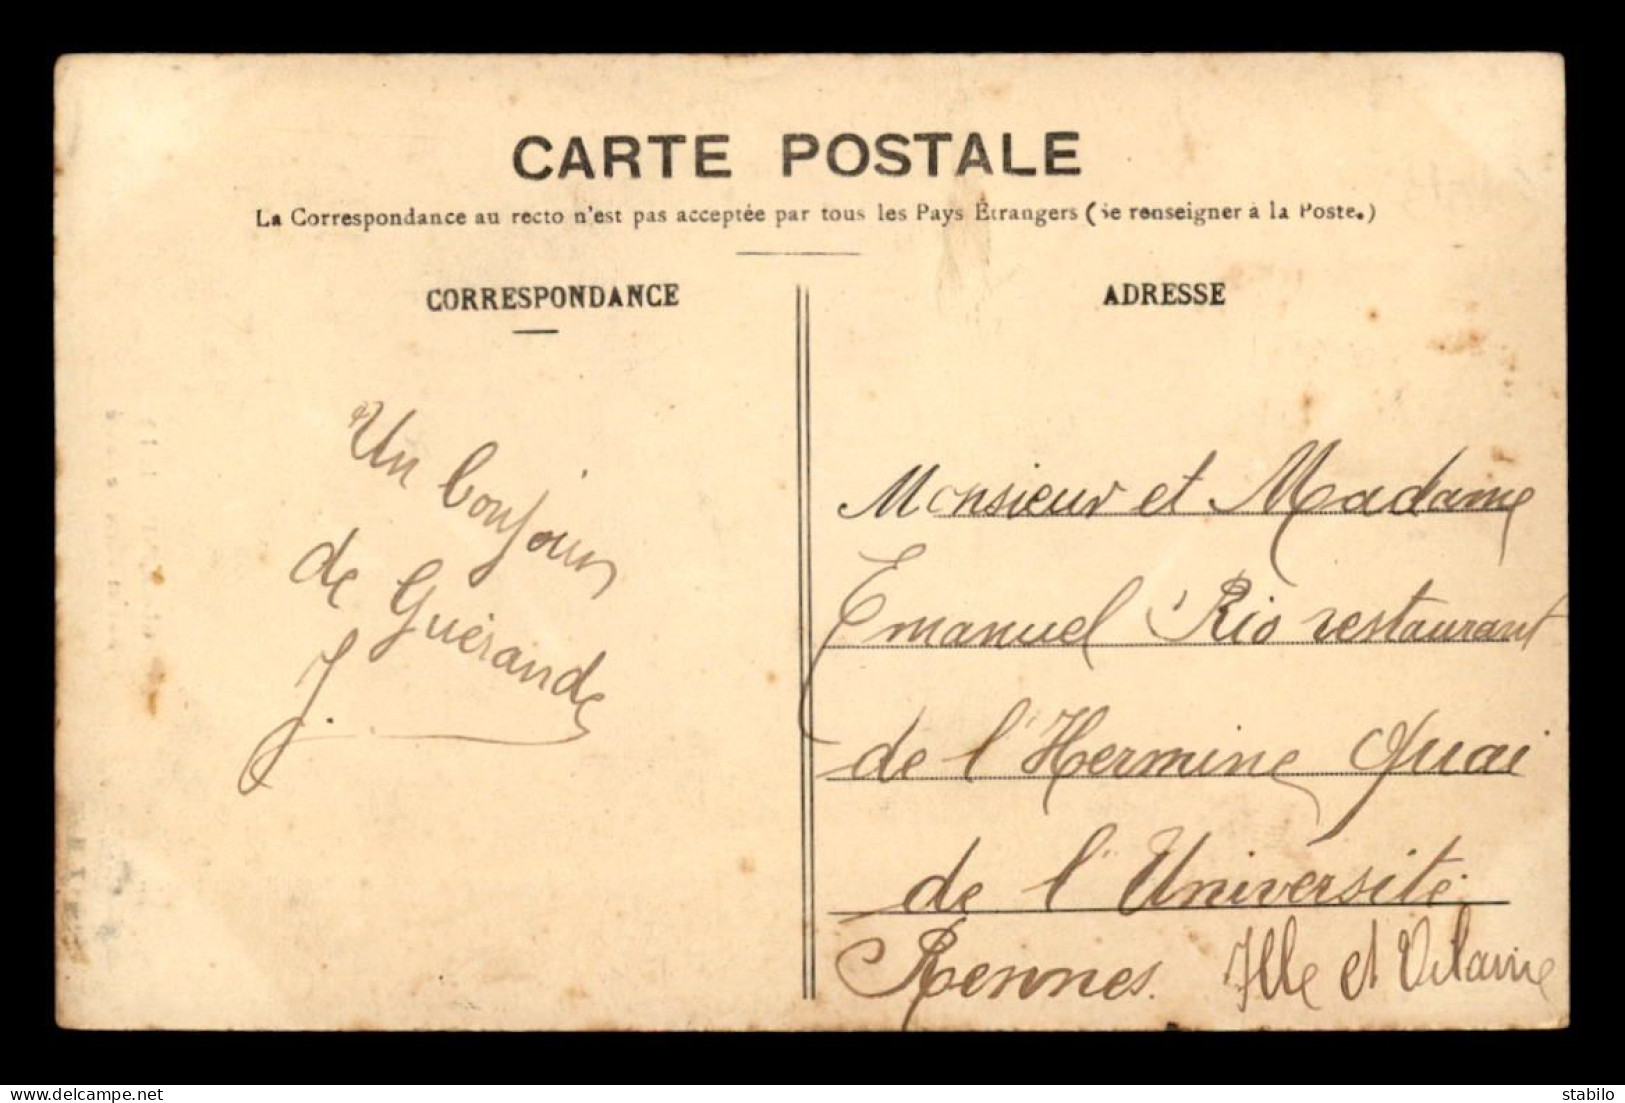 CARTE POSTALE
La Correspondance au recto n'est pas acceptée par tous les Pays Étrangers (Se renseigner à la Poste.)
CORRESPONDANCE
Un bonjour
de Guérande
J.
ADRESSE
Monsieur et Madame
Emanuel Rio restaurant
de l'Hermine Quai
de l'Université
Rennes. Ille et Vilaine
stabilo